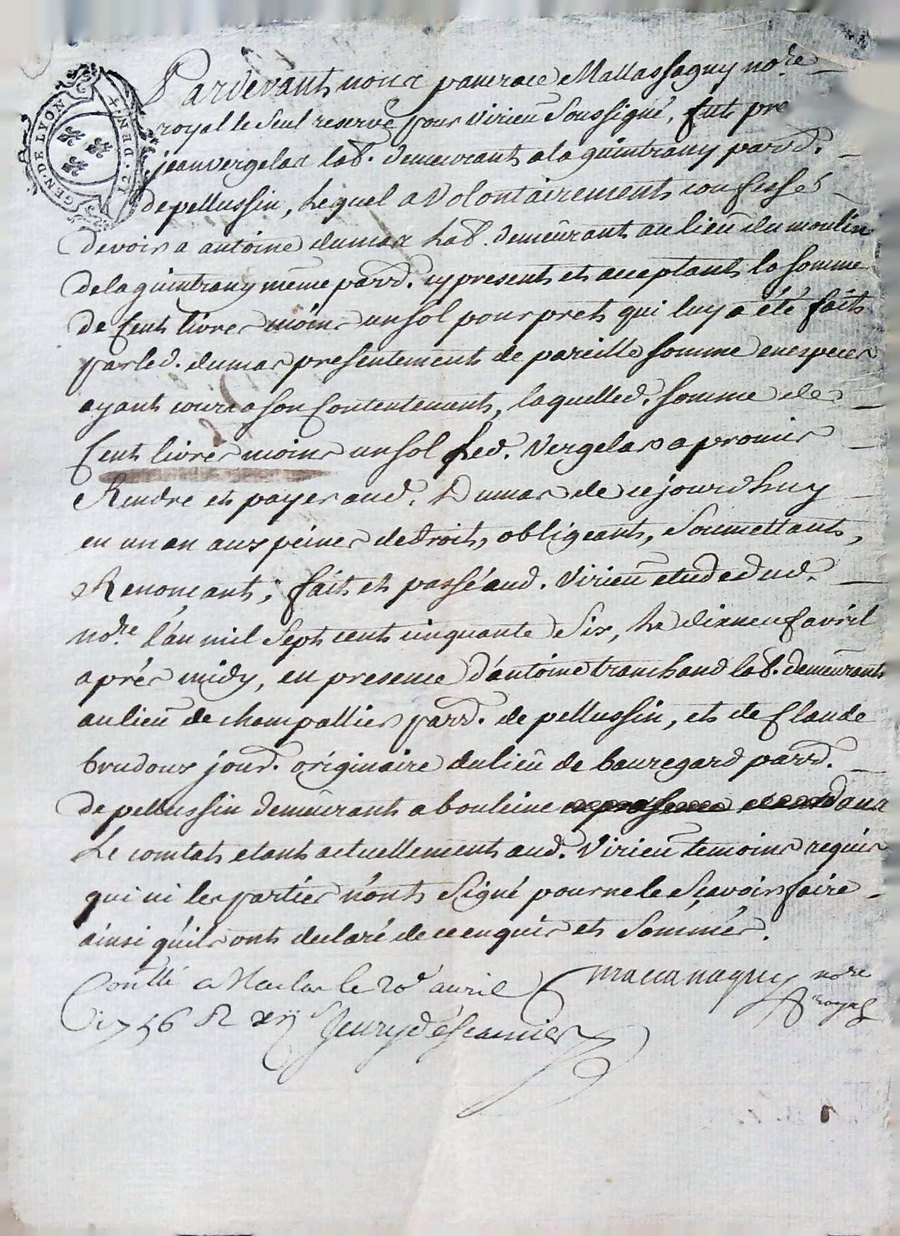 GEN·DE LYON
12·DEN
Pardevant nous pancrace Mallassagny no.re
royal le seul reservé pour Virieu Soussigné, fut pre
jean vergelas lab. demeurant a la guintrany parr.
de pellussin, Lequel a Volontairement confessé
devoir a antoine dumas Lab. demeurant au lieu du moulin
de la guintrany même parr. cy present et acceptant la somme
de Cent livres moins un sol pour prets qui luy a été faits
par led. dumas presentement de pareille somme en especes
ayant cours a son Contentement, laquelled. somme de
Cent livres moins un sol led. Vergelas a promis
Rendre et payer aud. Dumas de cejourdhuy
en un an aux peines de droit, obligeant, Soumettant,
Renoncant; fait et passé aud. Virieu etude dud.
no.re l'an mil sept cent cinquante Six, Le dixneuf avril
aprés midy, en presence d'antoine tranchand lab. demeurant
au lieu de champallier parr. de pellussin, et de Claude
brudoux jour. originaire du lieu de bauregard parr.
de pellussin demeurant a bouleine dans
Le comtat etant actuellement aud. Virieu temoins requis
qui ni les parties n'ont Signé pour ne le Sçavoir faire
ainsi qu'ils ont declaré de ce enquis et Sommés.
Conttlé a Maclas le 20.e avril no.re
1756 R royal